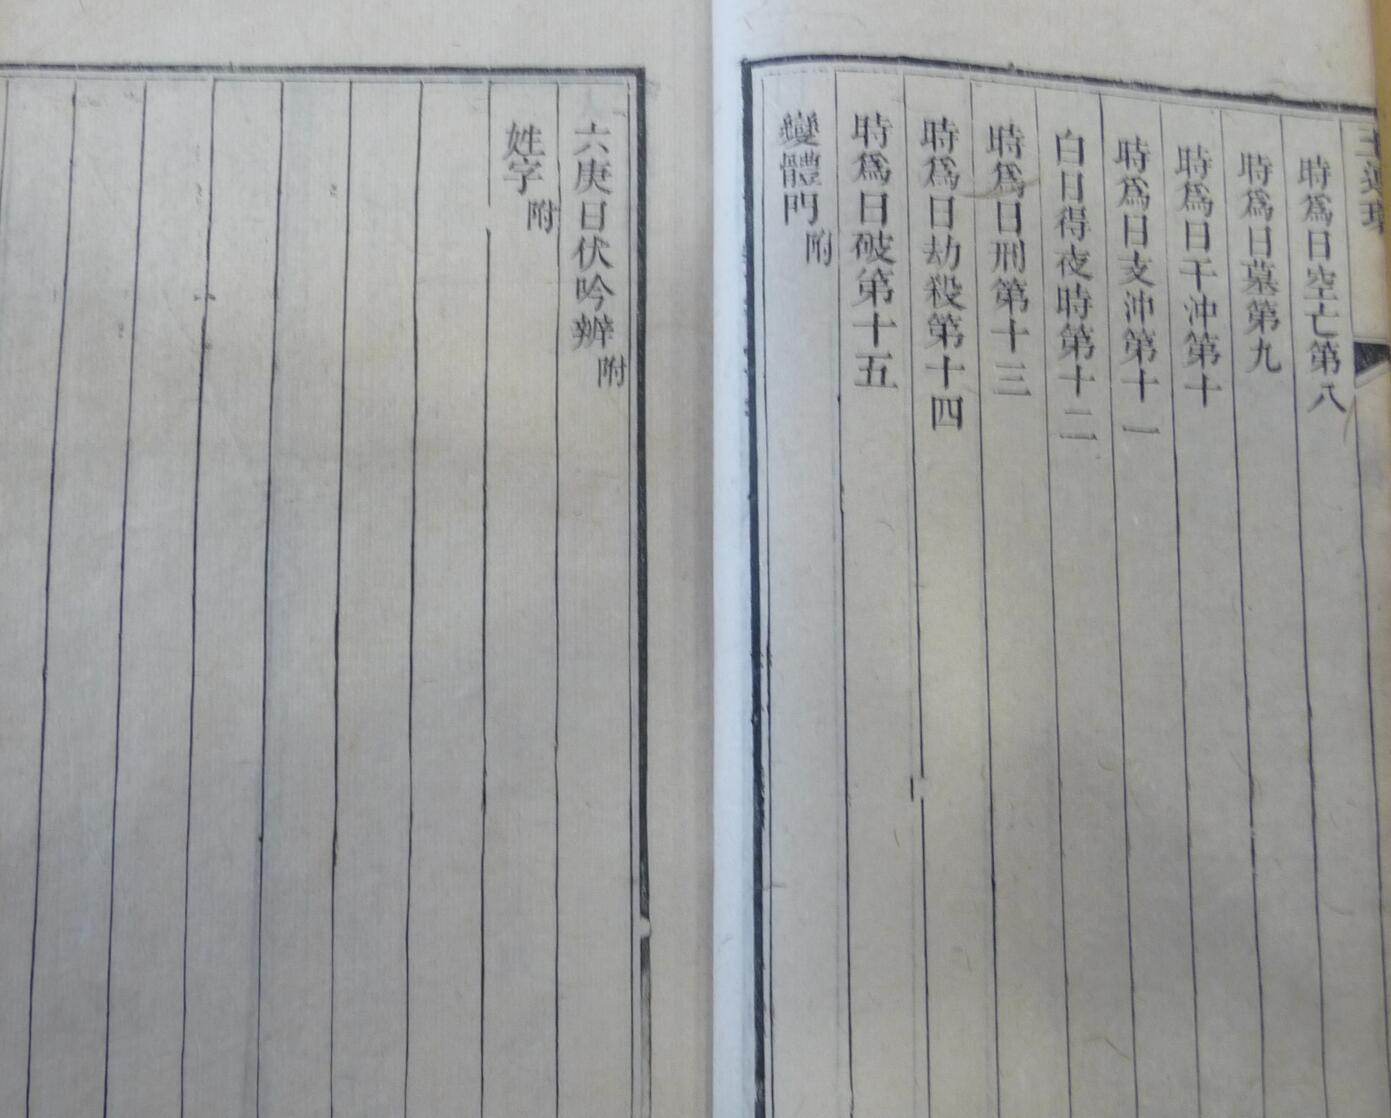 玉連環
時爲日空亡第八
時爲日墓第九
時爲日干沖第十
時爲日支沖第十一
白日得夜時第十二
時爲日刑第十三
時爲日劫殺第十四
時爲日破第十五
變體門附
六庚日伏吟辨附
姓字附